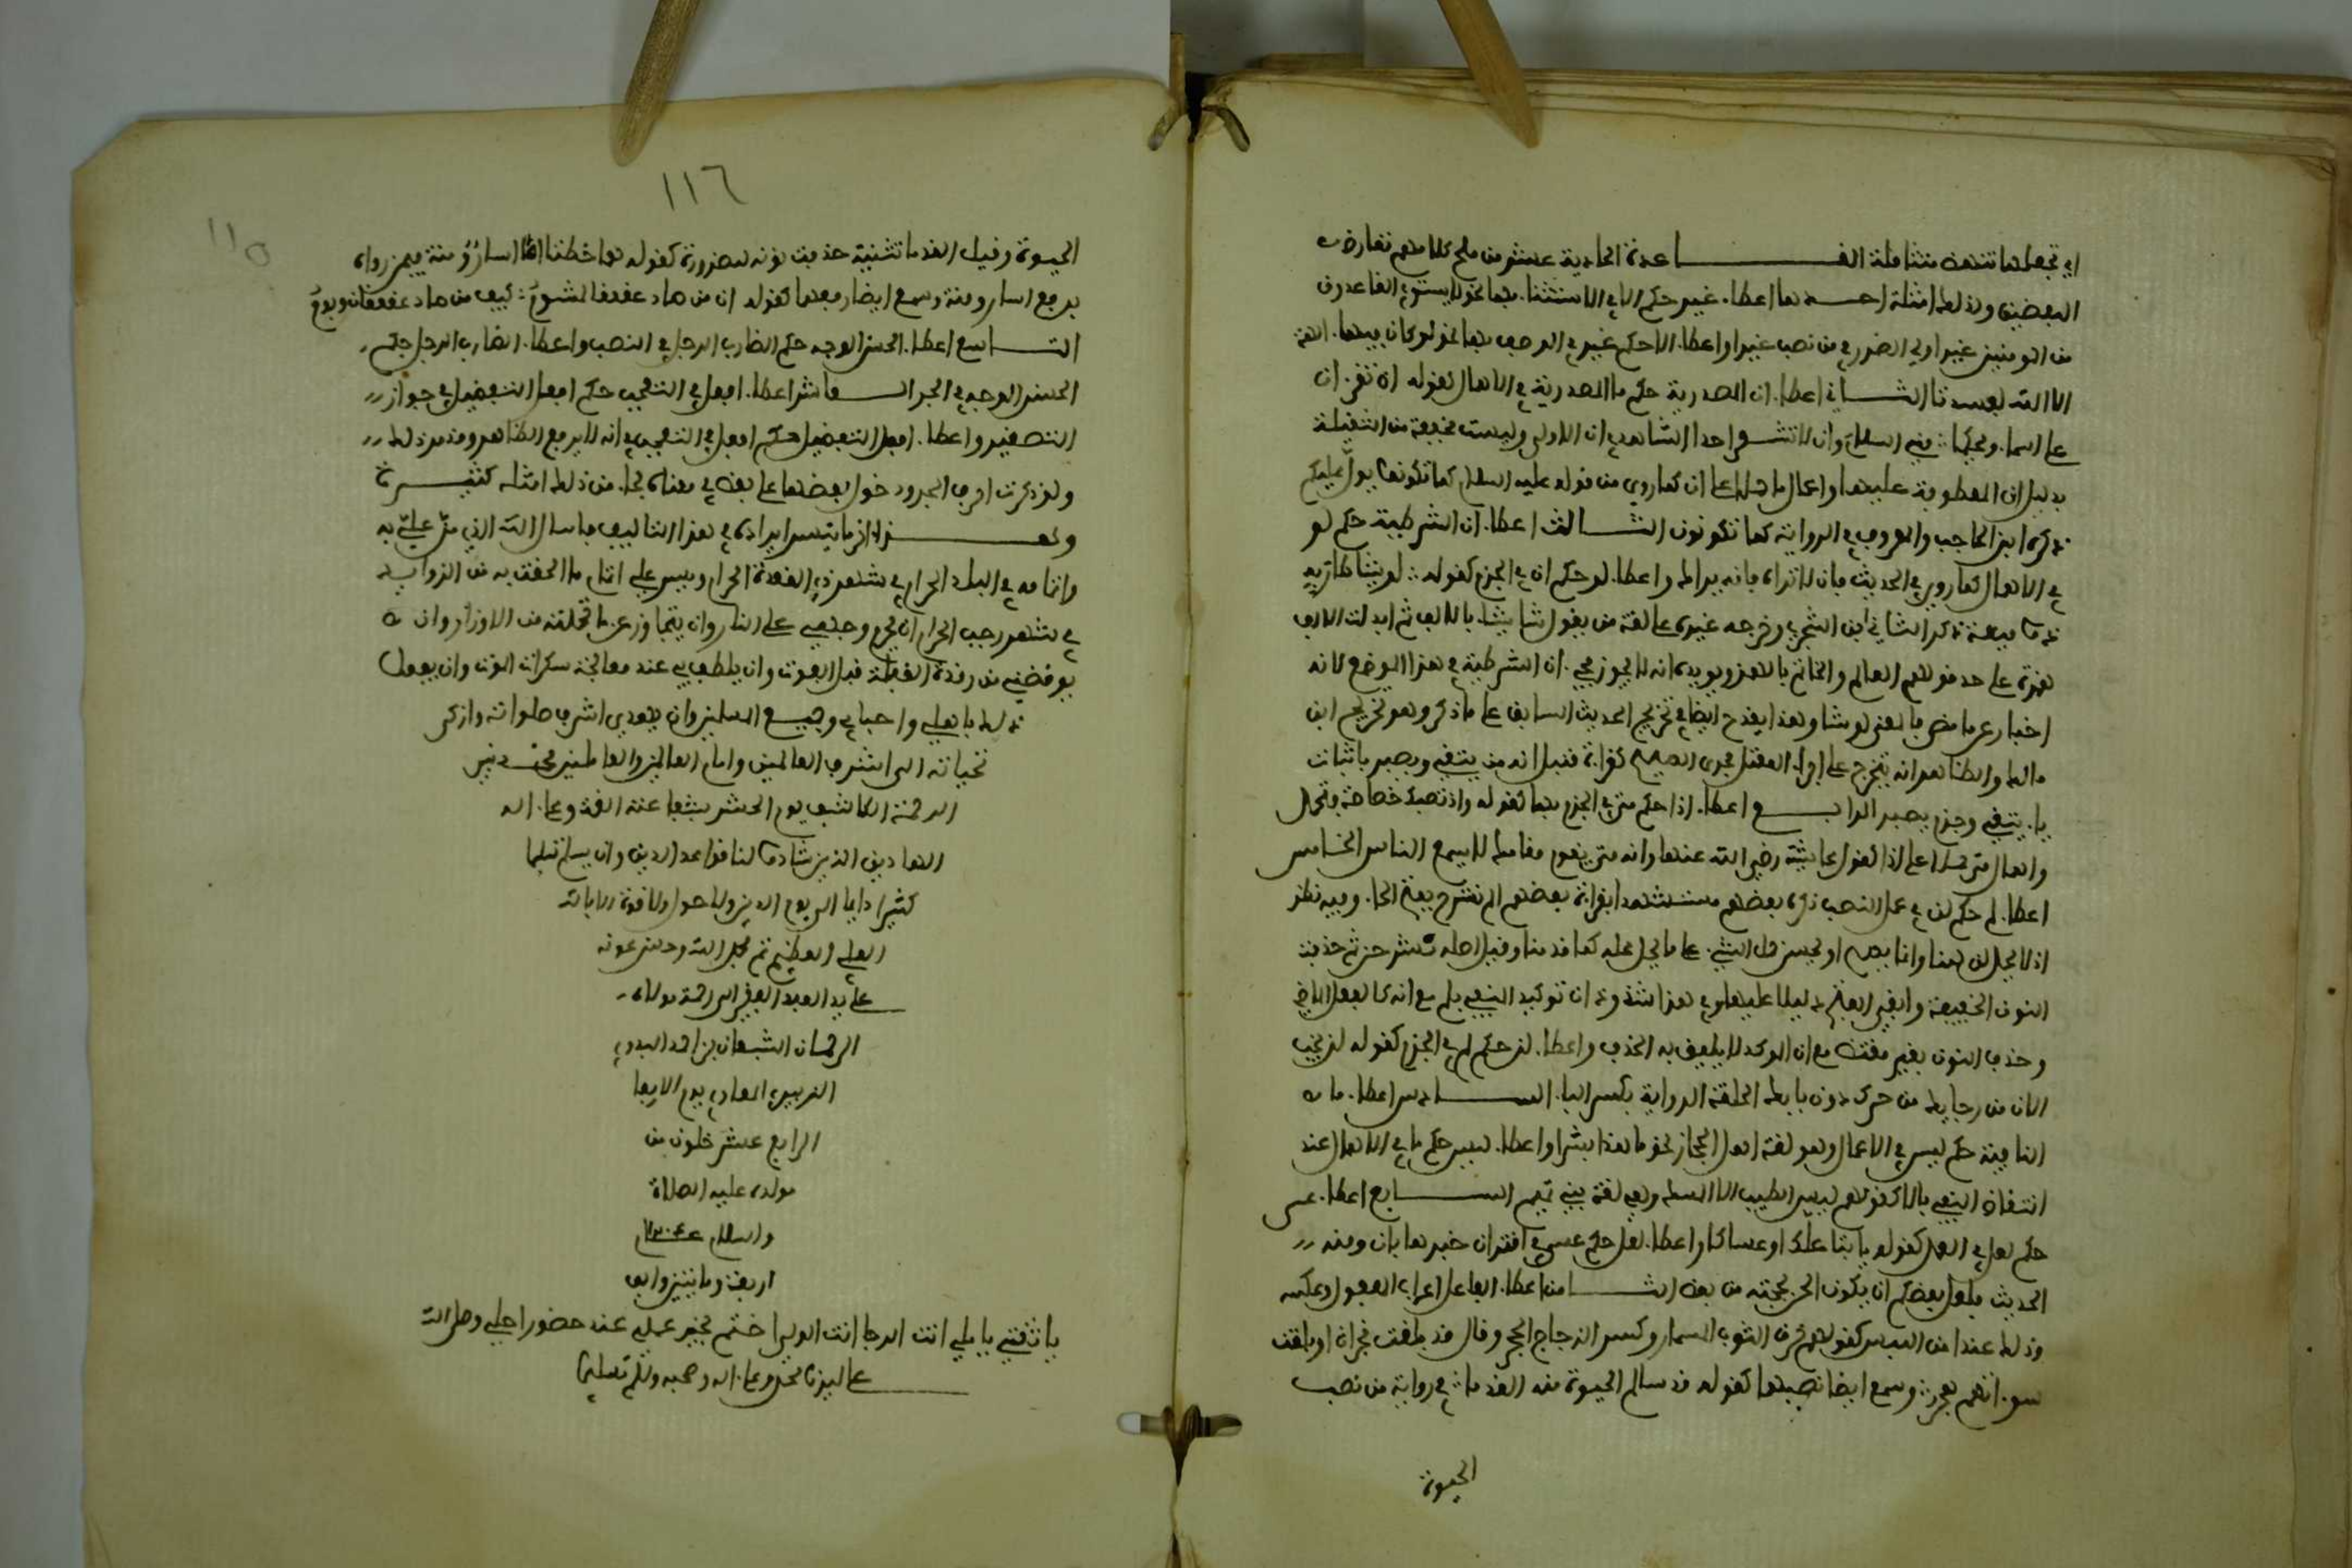 اي تجعلها تنهض متثاقلة القاعدة الحادية عشر من ملح كلامهم تقارض
اللفظين ولذلك امثلة احدها اعطاء غير حكم الا في الاستثناء بها نحو لا يستوي القاعدون
من المومنين غير اولي الضرر في من نصب غير واعطاء الا حكم غير في الوصف بها نحو لو كان فيهما الهة
الا الله لفسدتا الثاني اعطاء ان المصدرية حكم ما المصدرية في الاهمال كقوله ان تقران
على اسماء ويحكما مني السلام وان لا تشعرا احدا الشاهد في ان الاولى وليست مخففة من الثقيلة
بدليل ان المعطوفة عليها واعمال ما حملا على ان كما روي من قوله عليه السلام كما تكونوا يولى عليكم
ذكره ابن الحاجب والمعروف في الرواية كما تكونون الثالث اعطاء ان الشرطية حكم لو
في الاهمال كما روي في الحديث فان لا تراه فانه يراك واعطاء لو حكم ان في الجزم كقوله لو يشا طار به
ذو ميعة ذكر الثاني ابن الشجري وخرجه غيره على لغة من يقول شا يشا بالالف ثم ابدلت الالف
همزة على حد قولهم العالم والخاتم بالهمز ويويده انه لا يجوز مجيء ان الشرطية في هذا الموضع لانه
اخبار عن ما مضى فالمعنى لو شا وهذا يقدح ايضا في تخريج الحديث السابق على ما ذكر وهو تخريج ابن
مالك والظاهر انه يتخرج على اجراء المعتل مجرى الصحيح كقراة قنبل انه من يتقي ويصبر باثبات
يا يتقي وجزم يصبر الرابع اعطاء اذا حكم متى في الجزم بها كقوله واذا تصبك خصاصة فتحمل
واهمال متى حملا على اذا كقول عايشة رضي الله عنها وانه متى يقوم مقامك لا يسمع الناس الخامس
اعطاء لم حكم لن في عمل النصب ذكره بعضهم مستشهدا بقراة بعضهم الم نشرح بفتح الحا وفيه نظر
اذ لا يحل لن هنا وانما يصح او يحسن حمل الشيء على ما يحل محله كما قدمنا وقيل اصله نشرحن ثم حذفت
النون الخفيفة وابقي الفتح دليلا عليها وفي هذا شذوذ ان توكيد المنفي بلم مع انه كالفعل الماضي
وحذف النون بغير مقتض مع ان الموكد لا يليق به الحذف واعطاء لن حكم لم في الجزم كقوله لن يخب
الان من رجايك من حرك دون بابك الحلقة الرواية بكسر البا السادس اعطاء ما
النافية حكم ليس في الاعمال وهو لغة اهل الحجاز نحو ما هذا بشرا واعطاء ليس حكم ما في الاهمال عند
انتقاض النفي بالا كقولهم ليس الطيب الا المسك وهي لغة بني تميم السابع اعطاء عسى
حكم لعل في العمل كقوله يا ابتا علك او عساكا واعطاء لعل حكم عسى في اقتران خبرها بان ومنه
الحديث فلعل بعضكم ان يكون الحن بحجته من بعض الثامن اعطاء الفاعل اعراب المفعول وعكسه
وذلك عند امن اللبس كقولهم خرق الثوب المسمار وكسر الزجاج الحجر وقال قد بلغت نجران او بلغت
سواتهم هجر وسمع ايضا نصبهما كقوله قد سالم الحيوة منه القدما في رواية من نصب
الحيوة
١١٦
١١٥
الحيوة وقيل القدما تثنية حذفت نونه للضرورة كقوله هما خطتا اما اسار ومنة فيمن رواه
برفع اسار ومنة وسمع ايضا رفعهما كقوله ان من صاد عقعقا لمشوم كيف من صاد عقعقان وبوم
التاسع اعطاء الحسن الوجه حكم الضارب الرجل في النصب واعطاء الضارب الرجل حكم
الحسن الوجه في الجر العاشر اعطاء افعل في التعجب حكم افعل التفضيل في جواز
التصغير واعطاء افعل التفضيل حكم افعل في التعجب في انه لا يرفع الظاهر وقد مر ذلك
ولو ذكرت احرف الجر ودخول بعضها على بعض في معناه لجا من ذلك امثلة كثيرة
وهذا اخر ما تيسر ايراده في هذا التاليف فاسال الله الذي من علي به
واتمامه في البلد الحرام في شهر ذي القعدة الحرام ويسر علي اتمام ما الحقت به من الزوايد
في شهر رجب الحرام ان يحرم وجهي على النار وان يتجاوز عن ما تحملته من الاوزار وان
يوقضني من رقدة الغفلة قبل الفوت وان يلطف بي عند معالجة سكرات الموت وان يفعل
ذلك باهلي واحبابي وجميع المسلمين وان يهدي اشرف صلواته وازكى
تحياته الى اشرف العالمين وامام العالمين والعاملين محمد نبي
الرحمة الكاشف يوم الحشر بشفاعته الغمة وعلى اله
الهادين الذين شادوا لنا قواعد الدين وان يسلم تسليما
كثيرا دايما الى يوم الدين ولا حول ولا قوة الا بالله
العلي العظيم تم بحمد الله وحسن عونه
على يد العبد الفقير الى رحمة مولاه
الرحمان الشبعان بن احمد البدوي
يوم الاربعا
الرابع عشر خلون من
مولده عليه الصلاة
والسلام عام
اربعة ومايتين والف
يا ثقتي يا املي انت الرجا انت الولي اختم بخير عملي عند حضور اجلي وصلى الله
على سيدنا محمد وعلى اله وصحبه وسلم تسليما